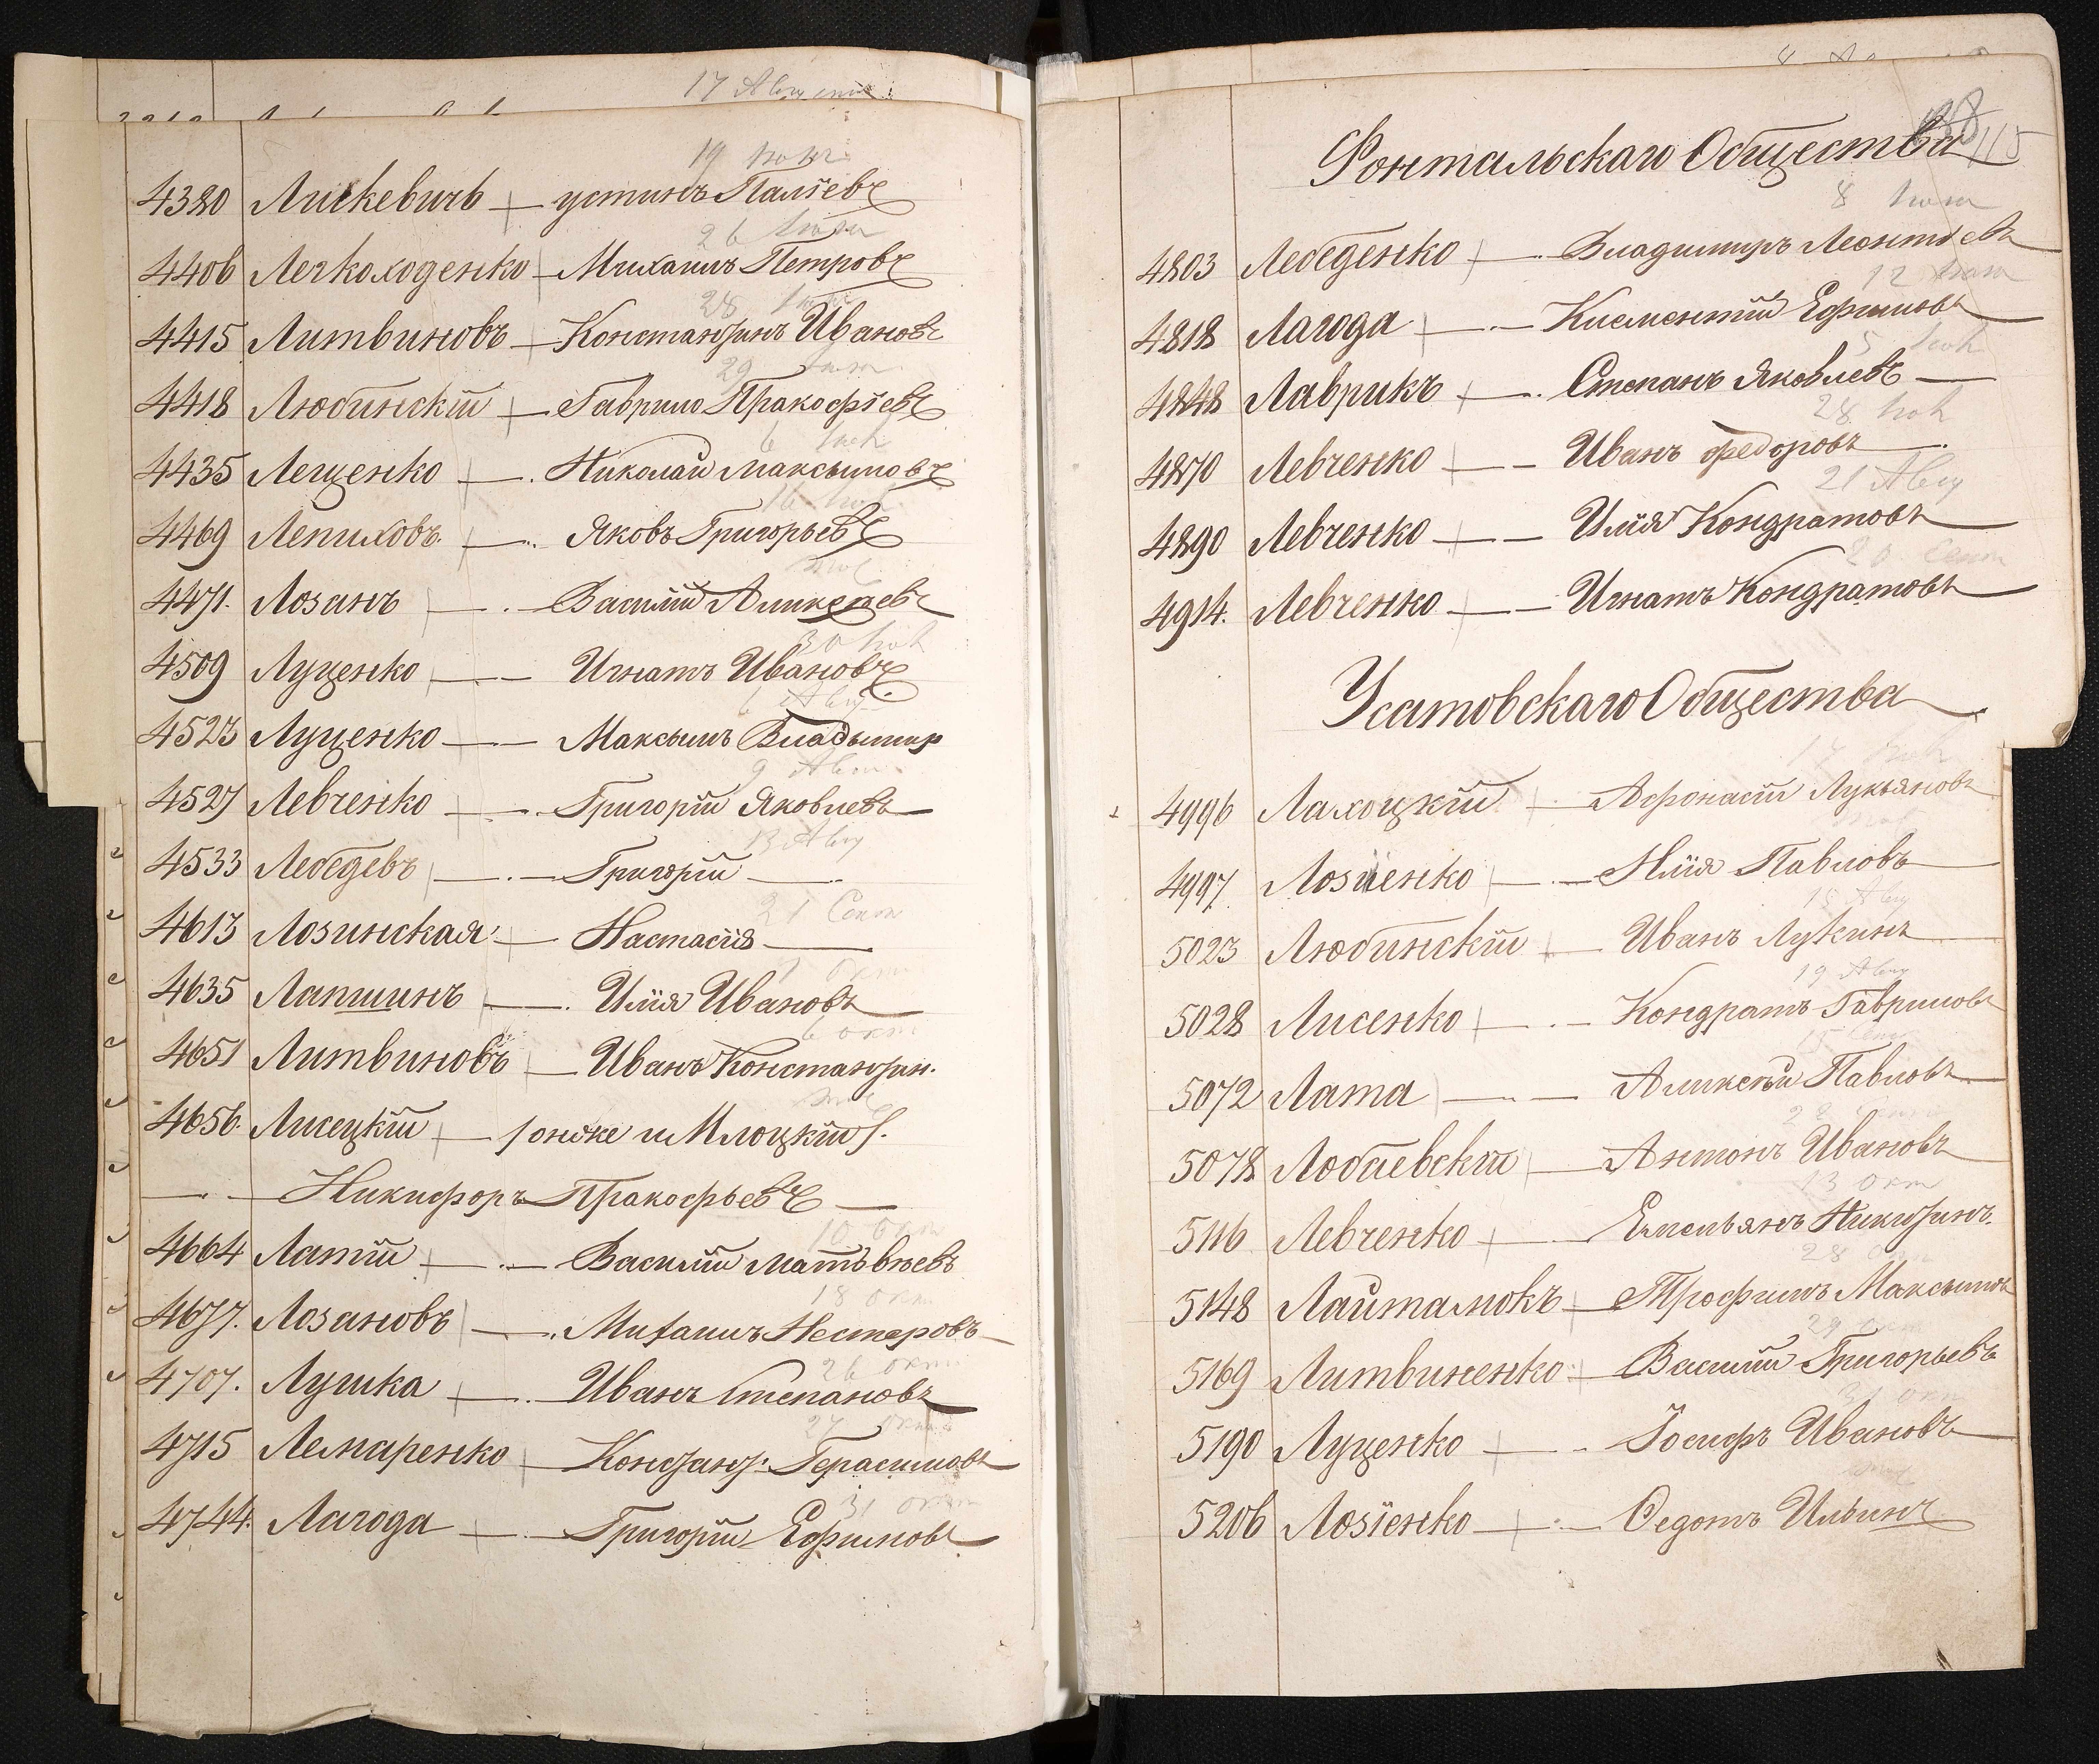 17 Августа
19 июня
4380 Лискевичъ — устинъ Паліевъ
26 июня
4406 Легкоходенко — Михаилъ Петровъ
28 июня
4415 Литвиновъ — Константинъ Ивановъ
29 июня
4418 Любинскій — Гаврило Пракофіевъ
6 июл
4435 Лещенко — Николай Максымовъ
16 июл
4469 Лепиховъ — Яковъ Григорьевъ
4471. Лозанъ — Василій Аликсѣевъ
30 июл
4509 Луценко — Игнатъ Ивановъ
6 Авг
4523 Луценко — Максымъ Владымир
9 Авг
4527 Левченко — Григорій Яковлевъ
13 Авг
4533 Лебедевъ — Григорій —
21 Сент
4613 Лозинская — Настасія —
окт
4635 Лапшинъ — Илія Ивановъ
6 окт
4651 Литвиновъ — Иванъ Константин.
4656. Лисецкій — /онже и Млоцкій/.
— Никифоръ Пракофьевъ —
10 окт
4664 Латій — Василій Матѣвѣевъ
18 окт
4677. Лозановъ — Михаилъ Нестеровъ
26 окт
4707. Лушка — Иванъ Степановъ
27 окт
4715 Лемаренко — Констант: Герасимовъ
31 окт
4744. Лагода — Григорій Ефимовъ
115
Фонтальскаго Общества
8 июня
4803 Лебеденко — Владимиръ Леонтіевъ
12 июня
4818 Лагода — Клементій Ефимовъ
5 июл
4848 Лаврикъ — Степанъ Яковлевъ —
28 июл
4870 Левченко — Иванъ федоровъ
21 Авг
4890 Левченко — Илія Кондратовъ
20 Сент
4914. Левченко — Игнатъ Кондратовъ
Усатовскаго Общества
17 июл
4996 Лахоцкій — Афонасій Лукьяновъ
4997 Лозіенко — Илія Павловъ
15 Авг
5023 Любинскій — Иванъ Лукинъ
19 Авг
5028 Лисенко — Кондратъ Гавриловъ
15
5072 Лата — Аликсѣй Павловъ
28
5078 Лобаевскій — Антонъ Ивановъ
13 окт
5116 Левченко — Емельянъ Никитинъ.
28 окт
5148 Лайтамокъ — Трофимъ Максымов
29 окт
5169 Литвиненко — Василій Григорьевъ
31 окт
5190 Луценко — Іосифъ Ивановъ
5206 Лозіенко — Федотъ Ильинъ